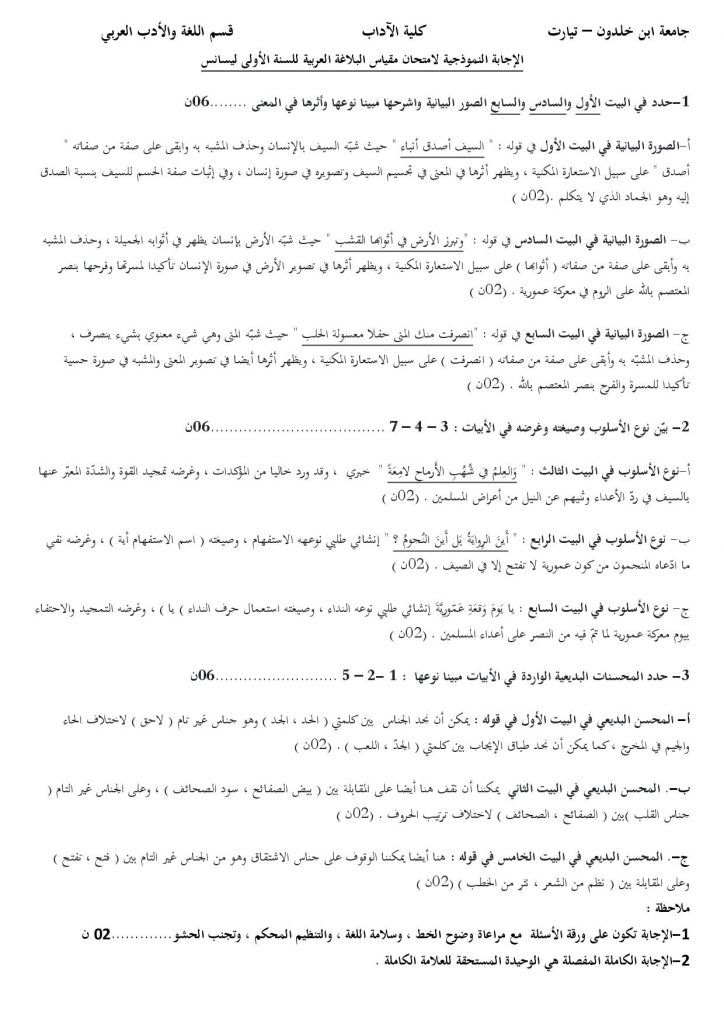 جامعة ابن خلدون – تيارت كلية الآداب قسم اللغة والأدب العربي
الإجابة النموذجية لامتحان مقياس البلاغة العربية للسنة الأولى ليسانس
1–حدد في البيت الأول والسادس والسابع الصور البيانية واشرحها مبينا نوعها وأثرها في المعنى ........06ن
أ–الصورة البيانية في البيت الأول في قوله : " السيف أصدق أنباء " حيث شبّه السيف بالإنسان وحذف المشبه به وابقى على صفة من صفاته "
أصدق " على سبيل الاستعارة المكنية ، ويظهر أثرها في المعنى في تجسيم السيف وتصويره في صورة إنسان ، وفي إثبات صفة الحسم للسيف بنسبة الصدق
إليه وهو الجماد الذي لا يتكلم .(02ن )
ب– الصورة البيانية في البيت السادس في قوله : "وتبرز الأرض في أثوابها القشب " حيث شبّه الأرض بإنسان يظهر في أثوابه الجميلة ، وحذف المشبه
به وأبقى على صفة من صفاته ( أثوابها ) على سبيل الاستعارة المكنية ، ويظهر أثرها في تصوير الأرض في صورة الإنسان تأكيدا لمسرتها وفرحها بنصر
المعتصم بالله على الروم في معركة عمورية . (02ن )
ج– الصورة البيانية في البيت السابع في قوله : "انصرفت منك المنى حفلا معسولة الحلب " حيث شبّه المنى وهي شيء معنوي بشيء ينصرف ،
وحذف المشبّه به وأبقى على صفة من صفاته ( انصرفت ) على سبيل الاستعارة المكنية ، ويظهر أثرها أيضا في تصوير المعنى والمشبه في صورة حسية
تأكيدا للمسرة والفرح بنصر المعتصم بالله . (02ن )
2– بيّن نوع الأسلوب وصيغته وغرضه في الأبيات : 3 – 4 – 7 .....................................06ن
أ–نوع الأسلوب في البيت الثالث : " وَالعِلمُ في شُهُبِ الأَرماحِ لامِعَةً " خبري ، وقد ورد خاليا من المؤكدات ، وغرضه تمجيد القوة والشدّة المعبّر عنها
بالسيف في ردّ الأعداء وثنيهم عن النيل من أعراض المسلمين . (02ن )
ب– نوع الأسلوب في البيت الرابع : " أَينَ الرِوايَةُ بَل أَينَ النُجومُ ؟ " إنشائي طلبي نوعهه الاستفهام ، وصيغته ( اسم الاستفهام أية ) ، وغرضه نفي
ما ادّعاه المنجمون من كون عمورية لا تفتح إلا في الصيف . (02ن )
ج– نوع الأسلوب في البيت السابع : يا يَومَ وَقعَةِ عَمّورِيَّةَ إنشائي طلبي نوعه النداء ، وصيغته استعمال حرف النداء ) يا ) ، وغرضه التمجيد والاحتفاء
بيوم معركة عمورية لما تمّ فيه من النصر على أعداء المسلمين . (02ن )
3– حدد المحسنات البديعية الواردة في الأبيات مبينا نوعها : 1 –2 – 5 ..........................06ن
أ– المحسن البديعي في البيت الأول في قوله : يمكن أن نجد الجناس بين كلمتي ( الحد ، الجد ) وهو جناس غير تام ( لاحق ) لاختلاف الحاء
والجيم في المخرج ، كما يمكن أن نجد طباق الإيجاب بين كلمتي ( الجدّ ، اللعب ) . (02ن )
ب–. المحسن البديعي في البيت الثاني يمكننا أن نقف هنا أيضا على المقابلة بين ( بيض الصفائح ، سود الصحائف ) ، وعلى الجناس غير التام (
جناس القلب )بين ( الصفائح ، الصحائف ) لاختلاف ترتيب الحروف . (02ن )
ج–. المحسن البديعي في البيت الخامس في قوله : هنا أيضا يمكننا الوقوف على جناس الاشتقاق وهو من الجناس غير التام بين ( فتح ، تفتح )
وعلى المقابلة بين ( نظم من الشعر ، نثر من الخطب ) (02ن )
ملاحظة :
1–الإجابة تكون على ورقة الأسئلة مع مراعاة وضوح الخط ، وسلامة اللغة ، والتنظيم المحكم ، وتجنب الحشو.............02 ن
2–الإجابة الكاملة المفصلة هي الوحيدة المستحقة للعلامة الكاملة .